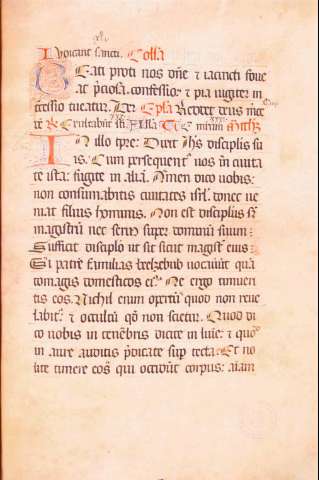 xli
Iudicant sancti. Coll'a
Beati proti nos dñe & iacincti foue
at p̃ciosa confessio: & pia iugiter in
t̃cessio tueatur. Per. Ep̃la Reddet deus m̃ce
Exultabũt sc̃i. All'a Te
In illo tp̃re: Dixit ih̃s discipl̃is su
is. Cum persequent' uos in ciuita
te ista: fugite in aliã. Amen dico uobis:
non consumabitis ciuitates isrl̃. donec ue
niat filius hominis. Non est discipl̃us sr̃
magistrũ nec seru' super dominũ suum:
Sufficit discipl̃o ut sit sicut magist̃ eius:
Si patrẽ familias beelzebub uocauer̃t quã
tomagis domesticos ei': Ne ergo timueri
tis eos. Nichil enim opertũ quod non reue
labit': & occultũ qd̃ non scietur. Quod di
co uobis in tenẽbris dicite in luĩe: & quod
in aure auditis p̃dicate sup̃ tecta. Et no
lite timere eos q̃ui occidũt corpus: aĩam